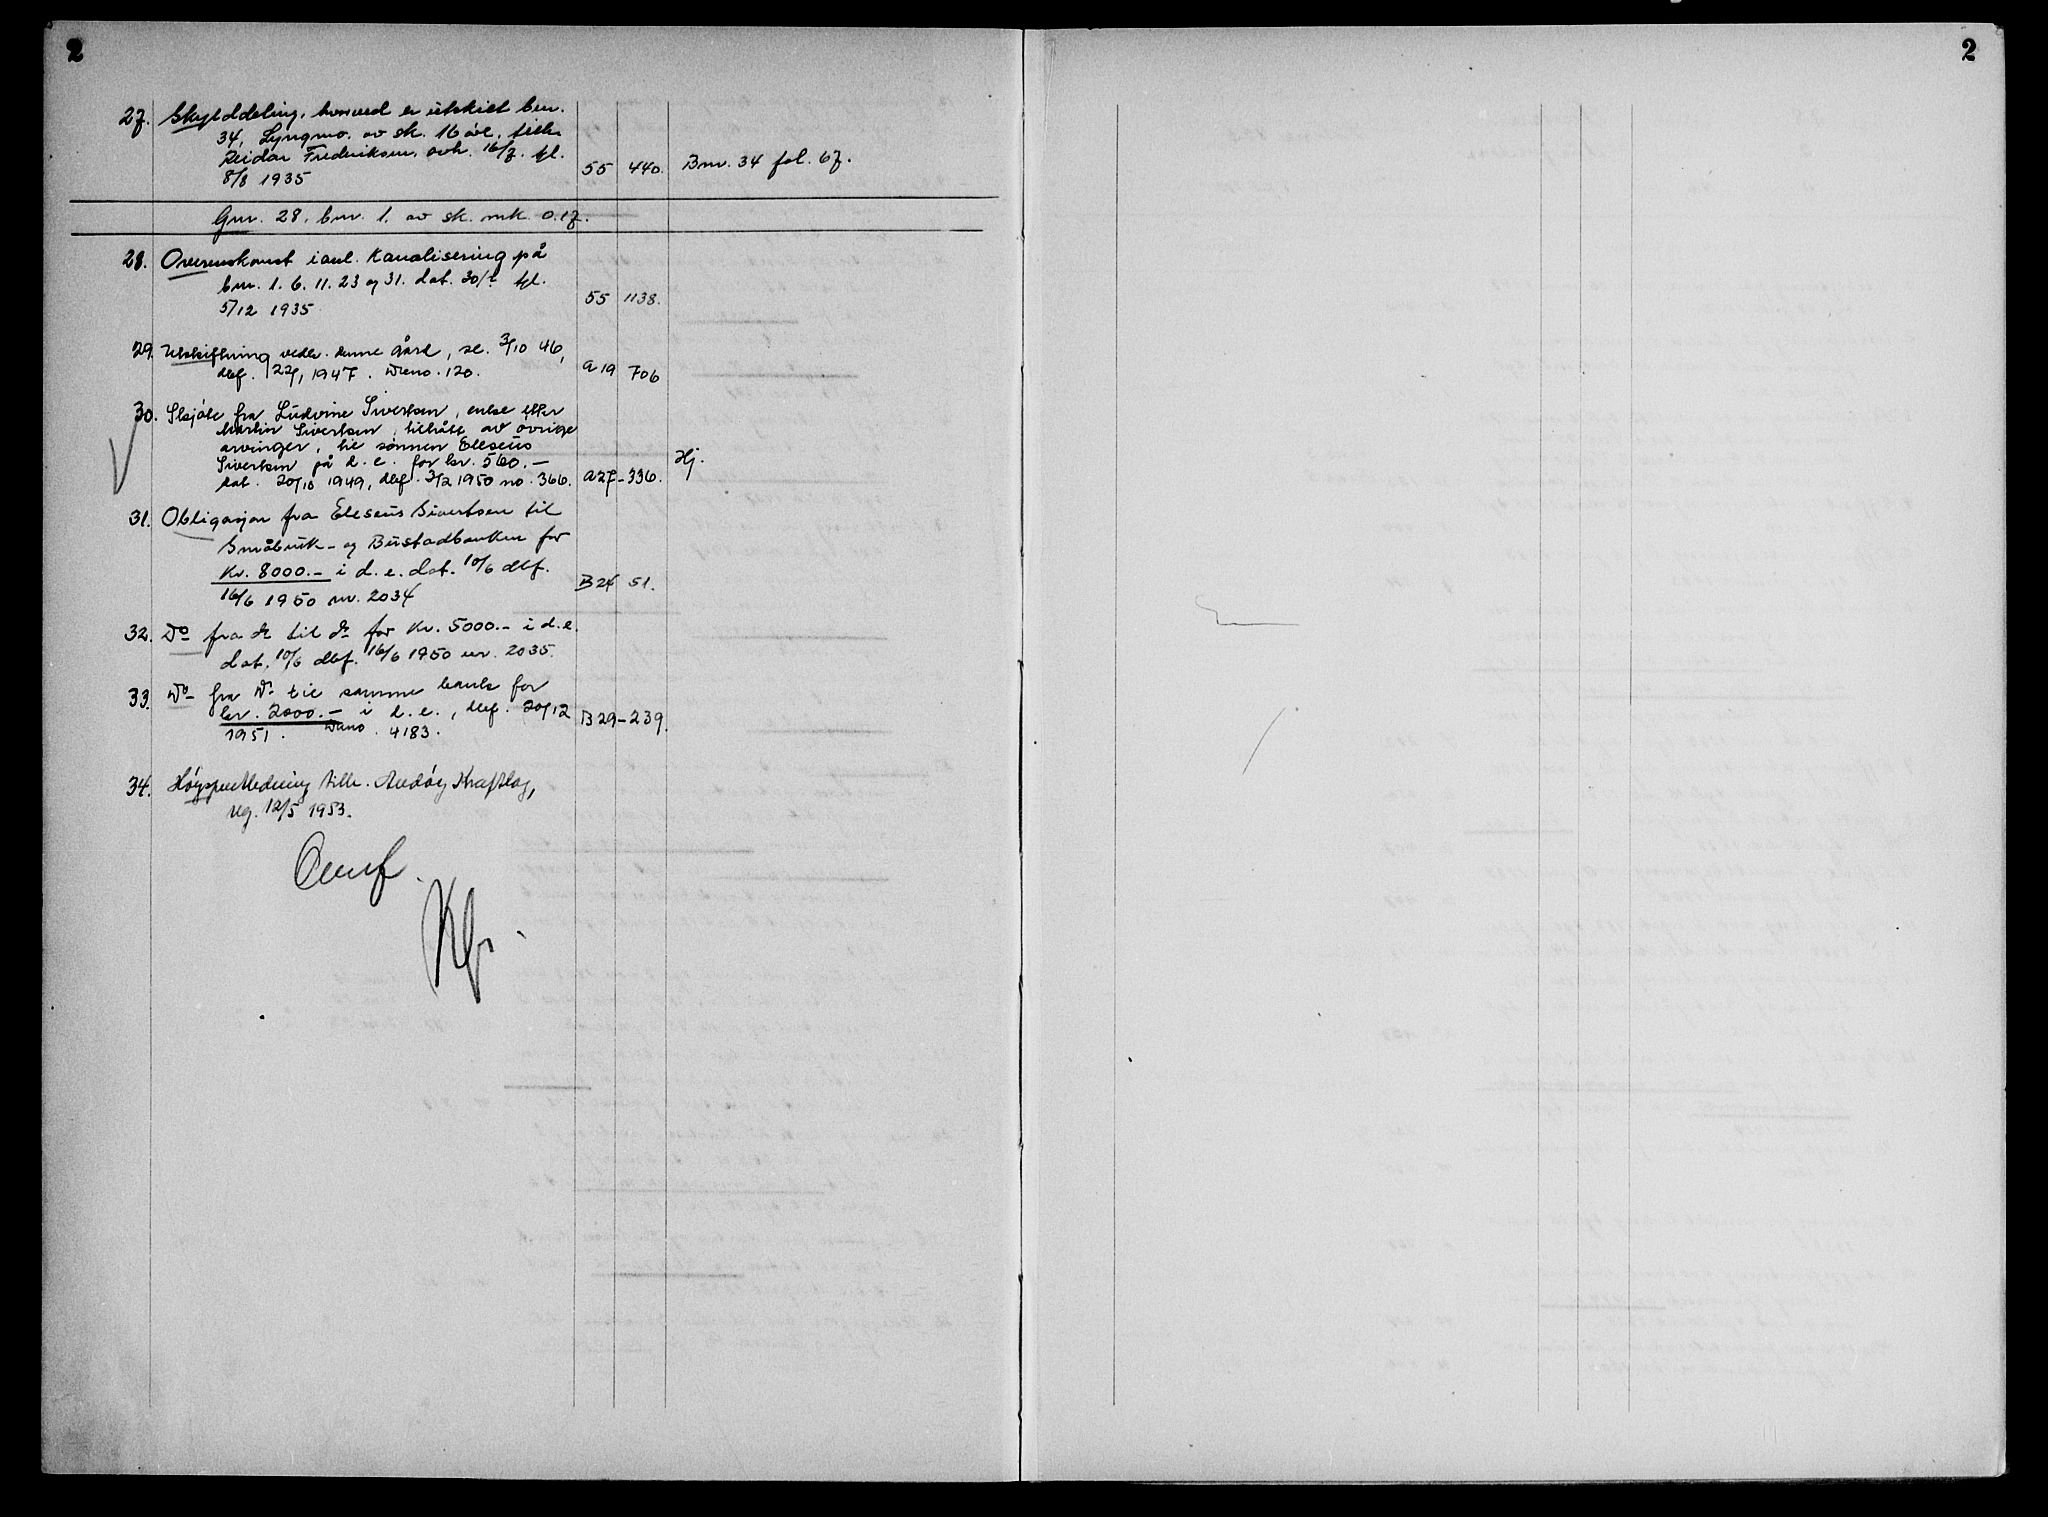 2
2
27. Skylddeling, hvorved er utskilt bnr.
34, Lyngmo. av sk. 16 øre, tilh.
Reidar Fredriksen. avh. 16/7. tgl.
8/8 1935
55 440. Bnr. 34 fol. 67.
Gnr. 28. bnr. 1. av sk. mk. 0.17.
28. Overenskomst i anl. Kanalisering på
bnr. 1. 6. 11. 23 og 31. dat. tgl.
5/12 1935
55 1138.
29. Utskiftning vedr. denne gård, sl. 3/10 46,
dbf. 22/1 1947. Dno. 120.
a 19 706
30. Skjöte fra Ludvine Sivertsen, enke etter
Martin Sivertsen, tiltrått av övrige
arvinger, til sønnen Eleseus
Sivertsen på d. e. for kr. 560.-
dat. 20/10 1949, dbf. 3/2 1950 no. 366.
a27-336.
Hj.
31. Obligasjon fra Eleseus Sivertsen til
Småbruk- og Bustadbanken for
Kr. 8000.- i d. e. dat. 10/6 dbf.
16/6 1950 nr. 2034
B 24 51.
32. Do fra do til do for Kr. 5000.- i d. e.
dat. 10/6 dbf. 16/6 1950 nr. 2035.
33. Do- fra Do til samme bank for
kr. 2000.- i d. e., dbf. 20/12
1951. 4183.
B 29-239.
34. Høyspentledning tilh. Andøy Kraftlag,
reg. 12/5 1953.